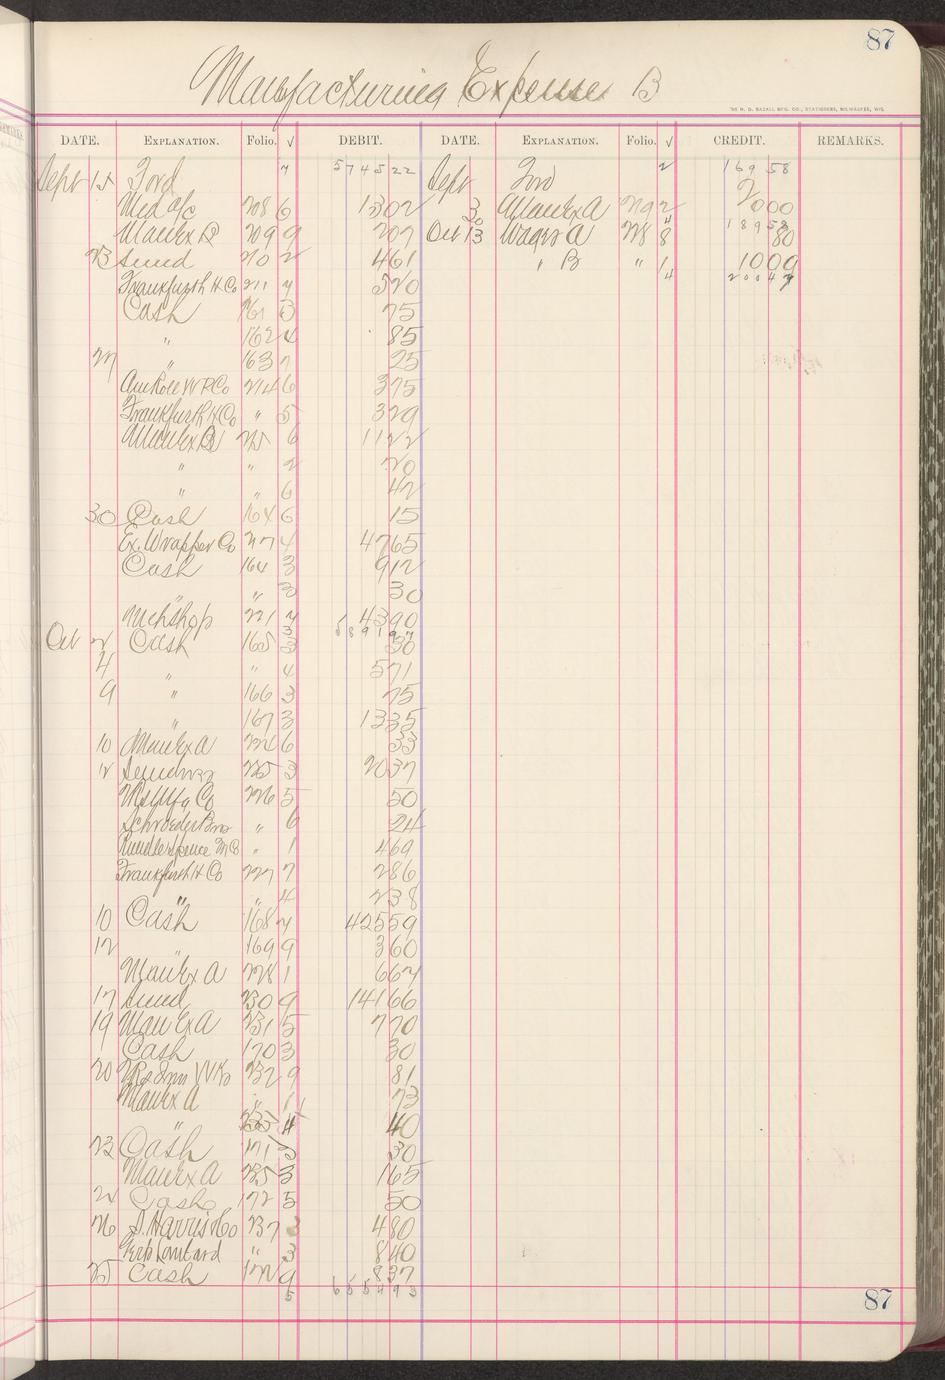 87
Manufacturing Expense B
DATE. EXPLANATION. Folio. √ DEBIT. DATE. EXPLANATION. Folio. √ CREDIT. REMARKS.
Sept 15 Ford 7 5745 22 Sept Ford 2 169 58
Mdse a/c 208 6 1302 3 Man Ex A 292 2000
Man Ex B 209 9 207 Oct 13 Wages A 228 8 80
189 58
23 Sund 210 2 461 " B " 1 1009
4 200 47
Frankfurth H Co 211 7 520
Cash 161 3 75
" 162 4 85
27 " 163 7 25
Am Role W P Co 214 6 375
Frankfurth H Co " 5 329
Man Ex B 215 6 1122
" " 2 20
" " 6 42
30 Cash 164 6 15
Ex. Wrapper Co 217 4 4765
Cash 164 3 912
" " 3 30
Mchshop 221 7 4390
3 5891 97
Oct 2 Cash 165 3 30
4 " " 4 571
9 " 166 3 75
" 167 3 1335
10 Man Ex A 224 6 33
12 Sundries 225 3 2037
Co 226 5 50
Schroeder Bros " 6 24
Rundle Spence M Co " 1 469
Frankfurth H Co 227 7 286
" " 4 238
10 Cash 168 7 42559
12 " 169 9 360
Man Ex A 228 1 667
17 Sund 230 9 14166
19 Man Ex A 231 5 770
Cash 170 3 30
20 232 9 81
Man Ex A " 1 73
" 235 4 40
23 Cash 171 3 30
Man Ex A 235 3 165
24 Cash 172 5 50
26 S. Harris & Co 237 3 480
Lombard " 3 840
25 Cash 172 9 837
5 6554 93
87